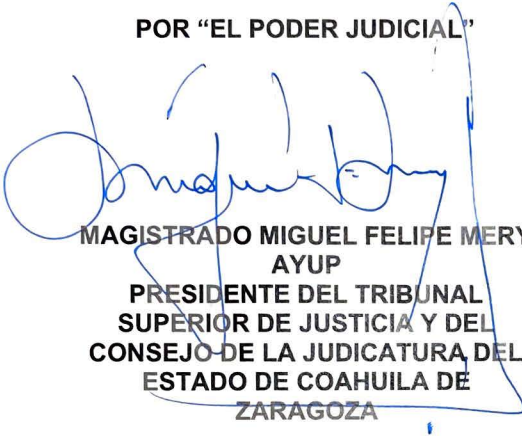 POR “EL PODER JUDICIAL”
MAGISTRADO MIGUEL FELIPE MERY
AYUP
PRESIDENTE DEL TRIBUNAL
SUPERIOR DE JUSTICIA Y DEL
CONSEJO DE LA JUDICATURA DEL
ESTADO DE COAHUILA DE
ZARAGOZA